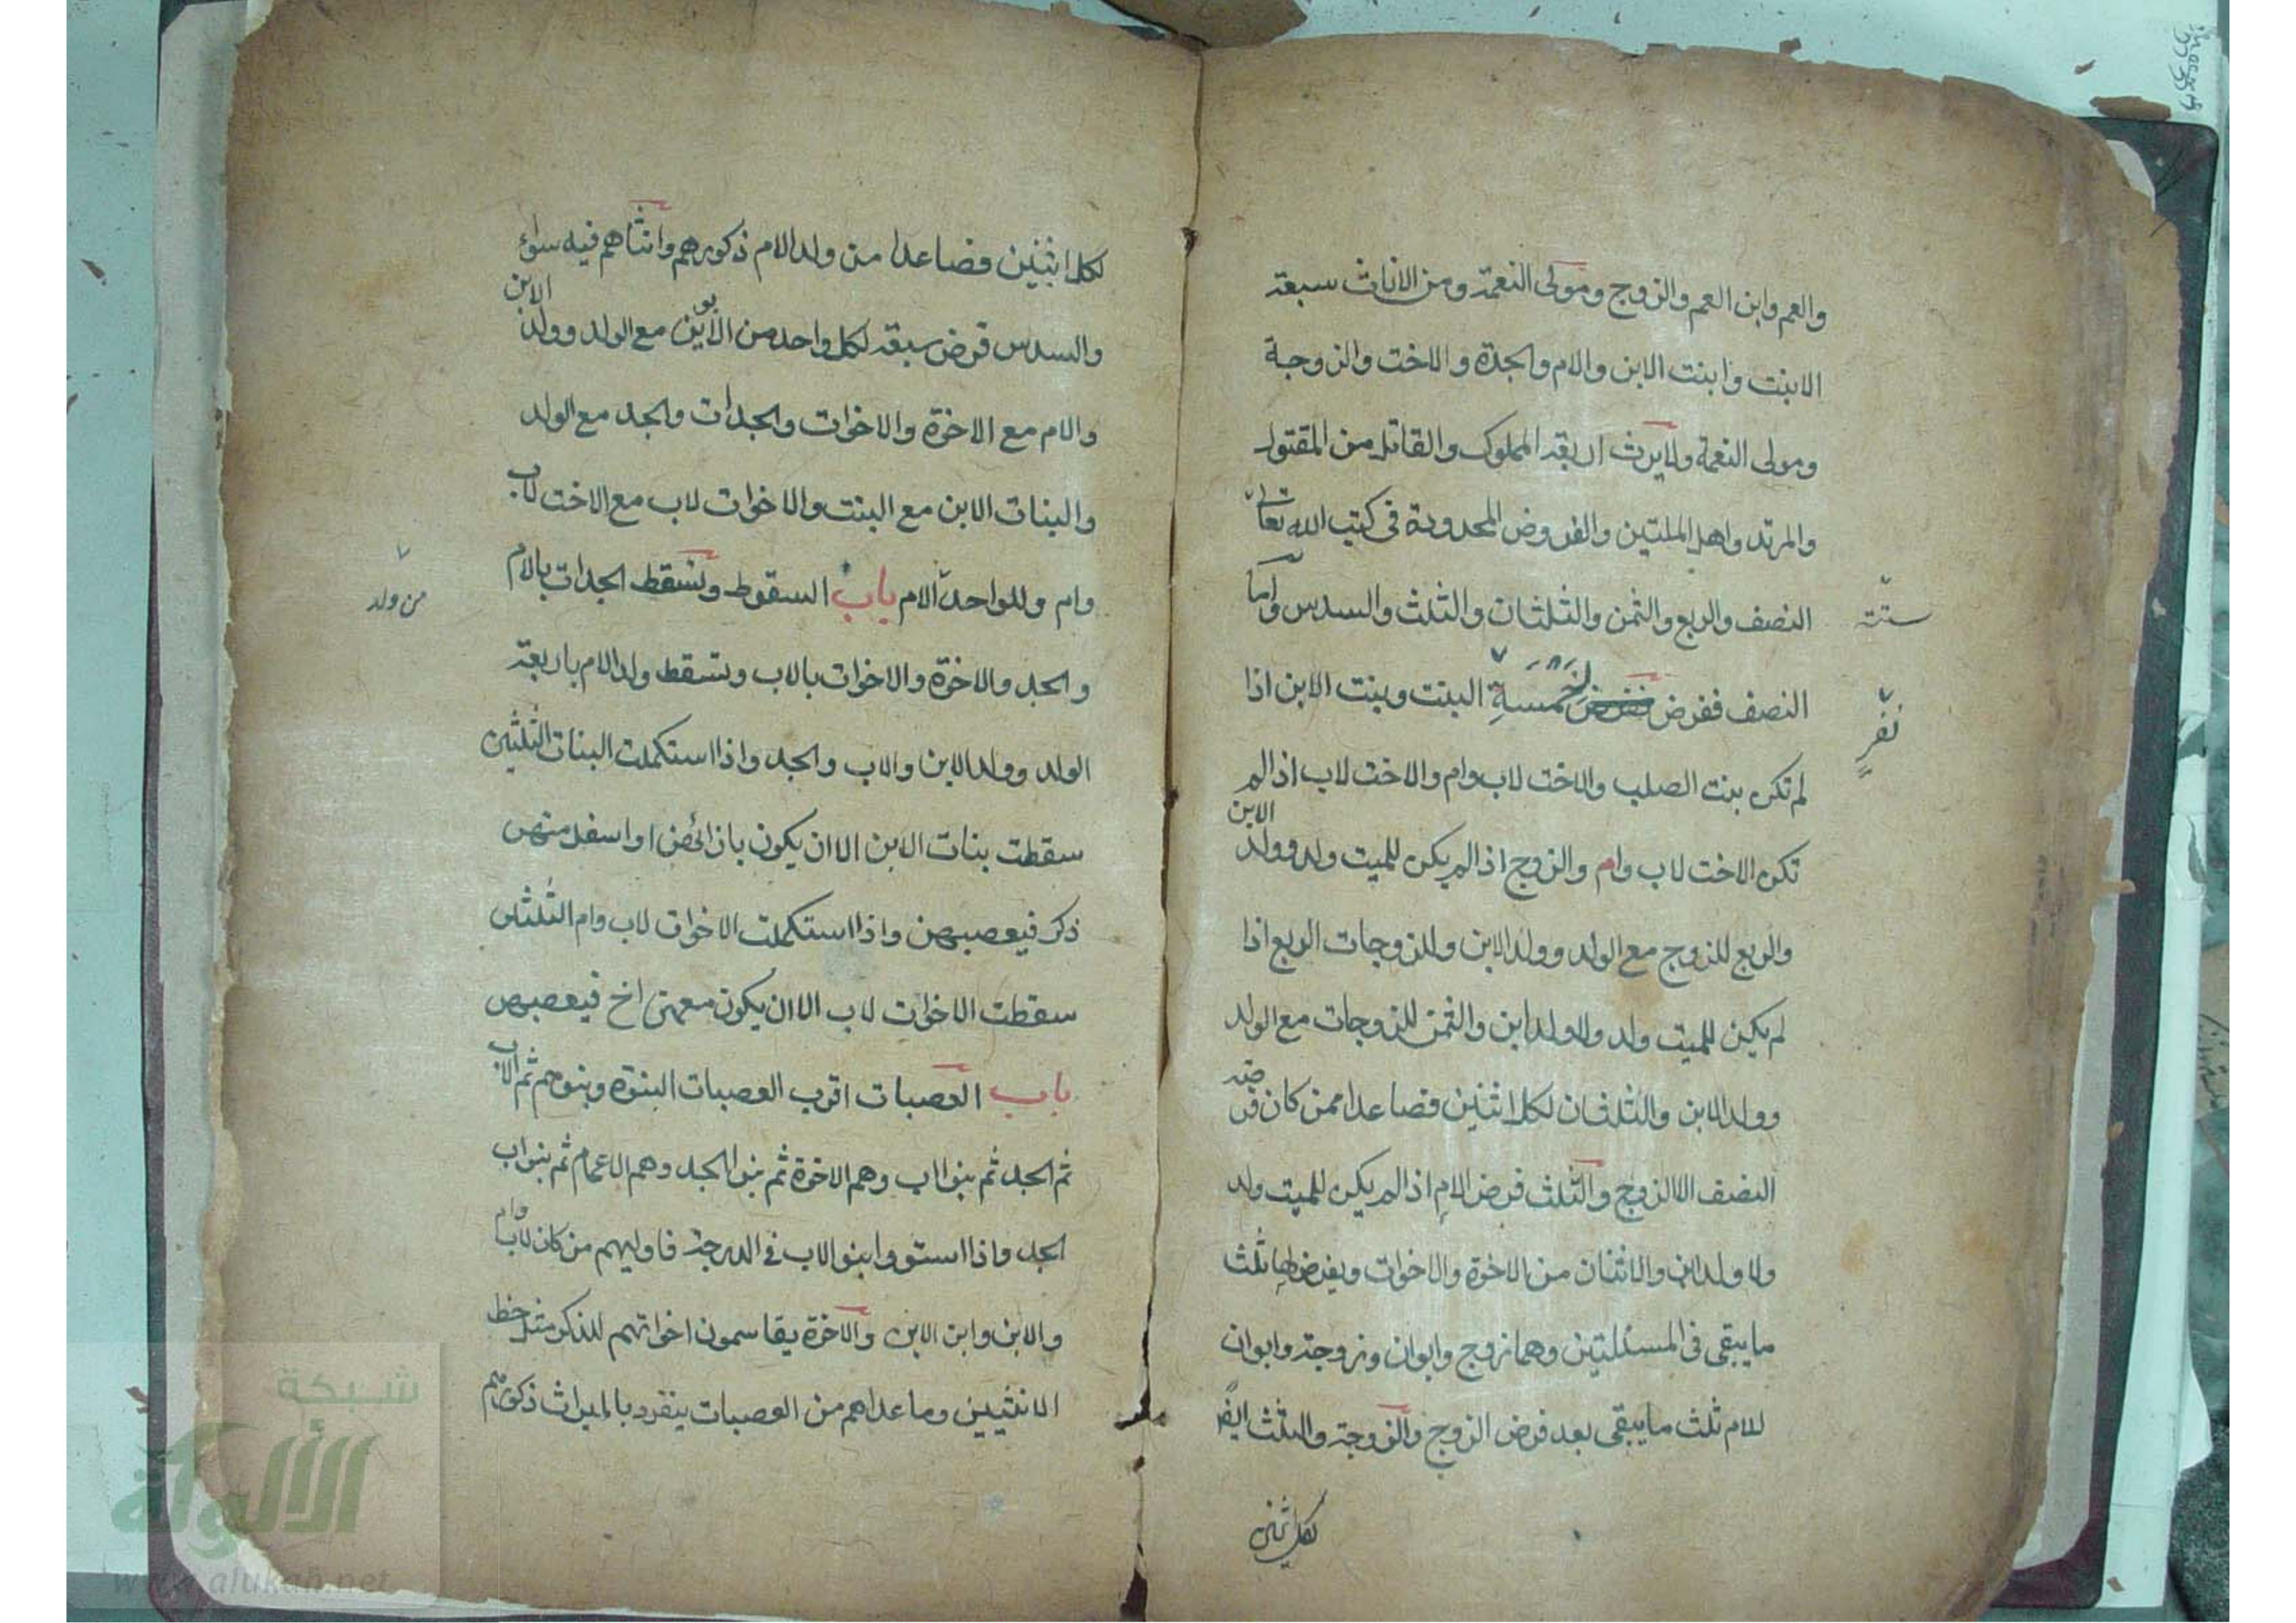 والعم وابن العم والزوج ومولى النعمة ومن الاناث سبعة
الابنت وابنت الابن والام والجدة والاخت والزوجة
ومولى النعمة ولايرث اربعة المملوك والقاتل من المقتول
والمرتد واهل الملتين والفروض المحدودة فى كتب الله تعالى
ستة
النصف والربع والثمن والثلثان والثلث والسدس واما
النصف ففرض خمسة البنت وبنت الابن اذا
نفر
لم تكن بنت الصلب والاخت لاب وام والاخت لاب اذا لم
تكن الاخت لاب وام والزوج اذا لم يكن للميت ولد وولد الابن
والربع للزوج مع الولد وولد الابن وللزوجات الربع اذا
لم يكن للميت ولد ولا ولد ابن والثمن للزوجات مع الولد
وولد الابن والثلثان لكل اثنين فصاعدا ممن كان فرضه
النصف الا الزوج والثلث فرض الام اذا لم يكن للميت ولد
ولا ولد ابن والاثنان من الاخوة والاخوات ويفرض لها ثلث
ما يبقى فى المسئلتين وهما زوج وابوان وزوجة وابوان
للام ثلث ما يبقى بعد فرض الزوج والزوجة والثلث ايضً
لكل اثنين
لكل اثنين فصاعدا من ولد الام ذكورهم وانثاهم فيه سواء
والسدس فرض سبعة لكل واحد من الابوين مع الولد وولد الابن
والام مع الاخوة والاخوات والجدات والجد مع الولد
والبنات الابن مع البنت والاخوات لاب مع الاخت لاب
وام وللواحد الام باب السقوط وتسقط الجدات بالام
من ولد
والجد والاخوة والاخوات بالاب وتسقط ولد الام باربعة
الولد وولد الابن والاب والجد واذا استكملت البنات الثلثين
سقطت بنات الابن الا ان يكون بازائهن او اسفل منهن
ذكر فيعصبهن واذا استكملت الاخوات لاب وام الثلثين
سقطت الاخوات لاب الا ان يكون معهن اخ فيعصبهن
باب العصبات اقرب العصبات البنوة وبنوهم ثم الاب
ثم الجد ثم بنوا اب وهم الاخوة ثم بنو الجد وهم الاعمام ثم بنو اب
الجد واذا استووا بنو الاب فى الدرجة فاوليهم من كان لاب وام
والابن وابن الابن والاخوة يقاسمون اخواتهم للذكر مثل حظ
الانثيين وما عداهم من العصبات ينفرد بالميراث ذكورهم
شبكة
الألوكة
www.alukah.net